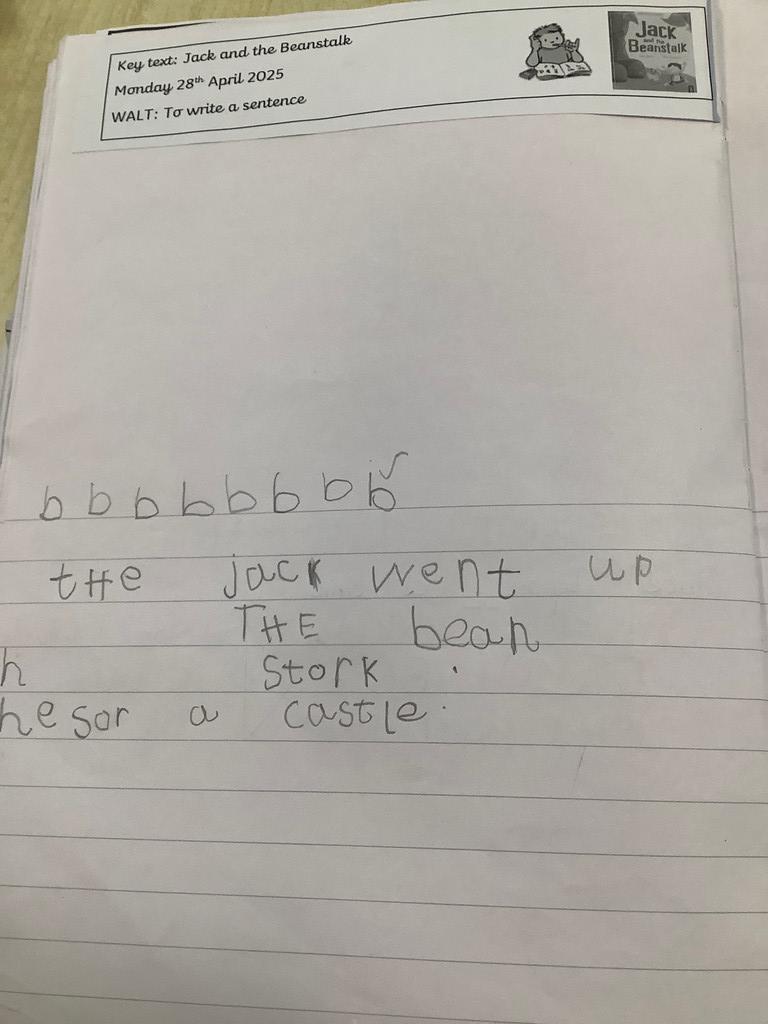 Key text: Jack and the Beanstalk
Monday 28th April 2025
WALT: To write a sentence
Jack
and the
Beanstalk
b b b b b b b b
tHe jack went up
THE bean
h stork .
he sor a castle.